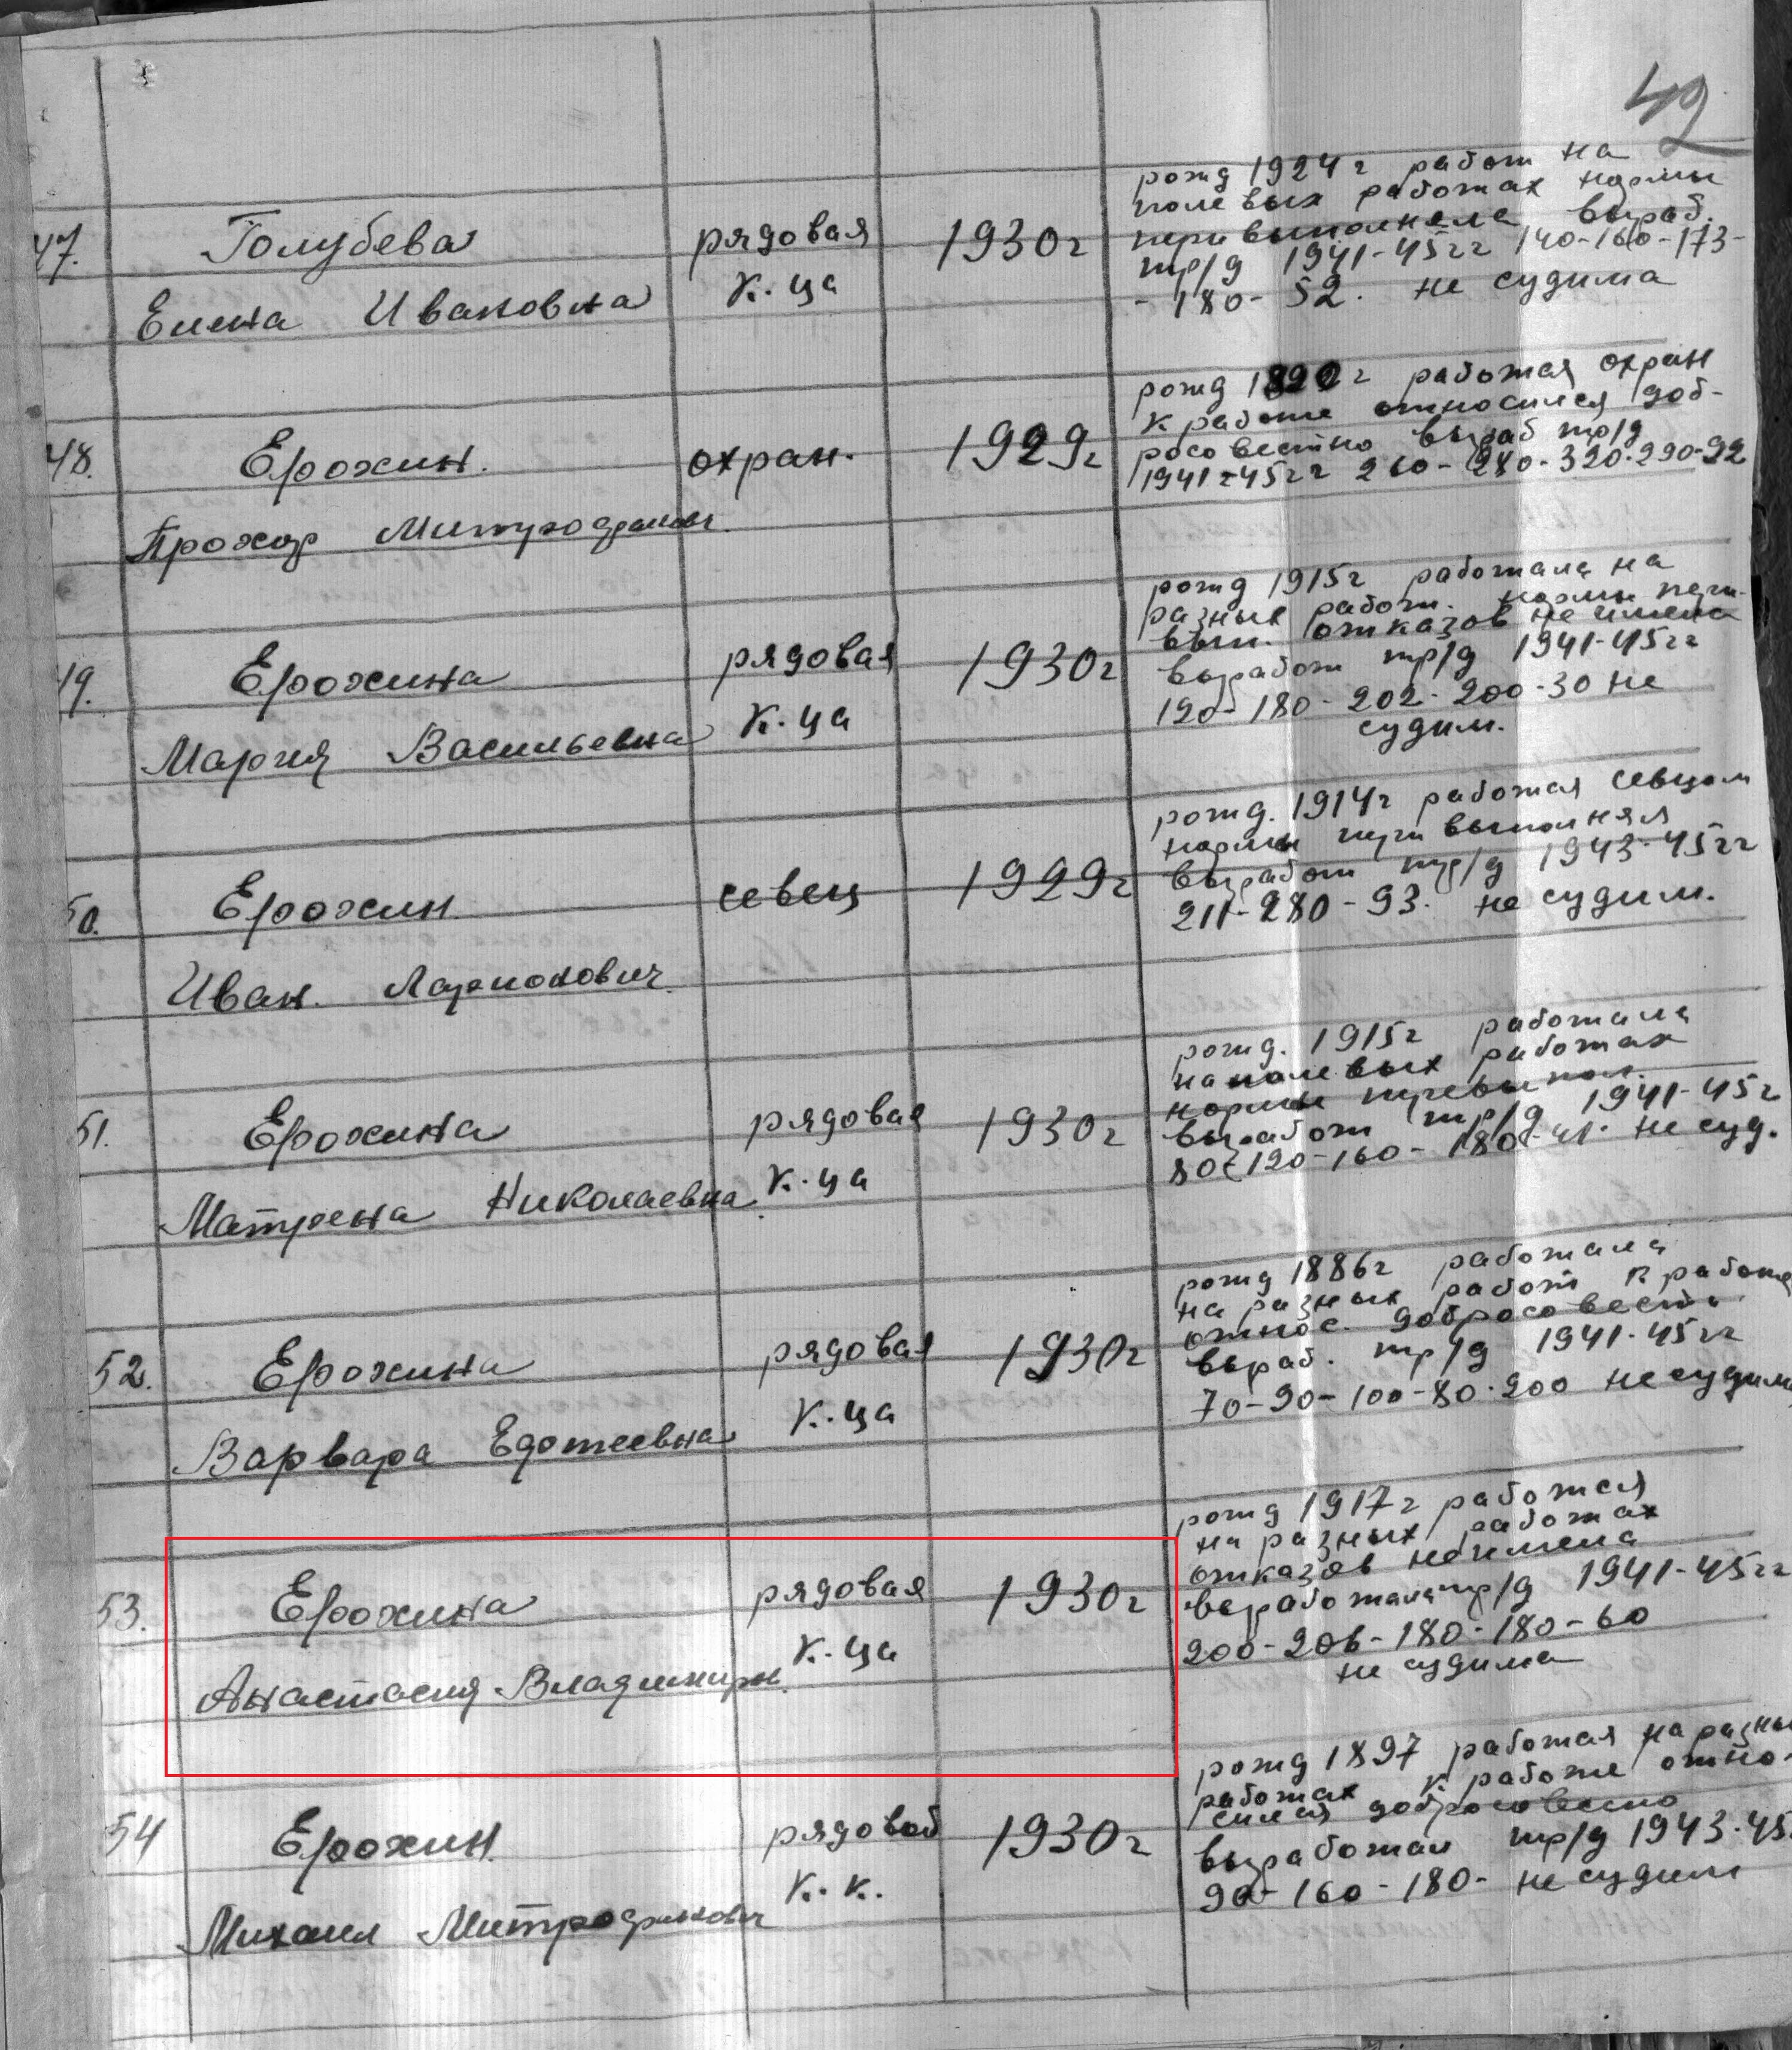 49
47. Голубева рядовая 1930г рожд 1924г работ на
Елена Ивановна к-ца полевых работах нормы
перевыполняла выраб.
тр/д 1941-45гг 140-160-173-
-180-52. не судима
48. Ерохин охран. 1929г рожд 1892г работал охран
Прохор к работе относился доб-
росовестно выраб тр/д
1941-45гг 260-280-320-290-92
49. Ерохина рядовая 1930г рожд 1915г работала на
Мария Васильевна к-ца разных работ. нормы пере-
вып. отказов не имела
выработ тр/д 1941-45гг
120-180-202-200-30 не
судим.
50. Ерохин севец 1929г рожд. 1914г работал севцом
Иван Ларионович нормы перевыполнял
выработ тр/д 1943-45гг
211-280-93. не судим.
51. Ерохина рядовая 1930г рожд. 1915г работала
Матрена Николаевна к-ца на полевых работах
нормы перевыпол.
выработ тр/д 1941-45г
80-120-160-180-41. не суд.
52. Ерохина рядовая 1930г рожд 1886г работала
Варвара к-ца на разных работ к работе
относ. добросовестн
выраб. тр/д 1941-45гг
70-90-100-80-200 не судим
53. Ерохина рядовая 1930г рожд 1917г работал
Анастасия Владимирн. к-ца на разных работах
отказов не имела
выработала тр/д 1941-45гг
200-206-180-180-60
не судима
54 Ерохин рядовой 1930г рожд 1897 работал на разны
Михаил Митрофанович к.к. работах к работе отно-
сился добросовестно
выработал тр/д 1943-45
90-160-180- не судим